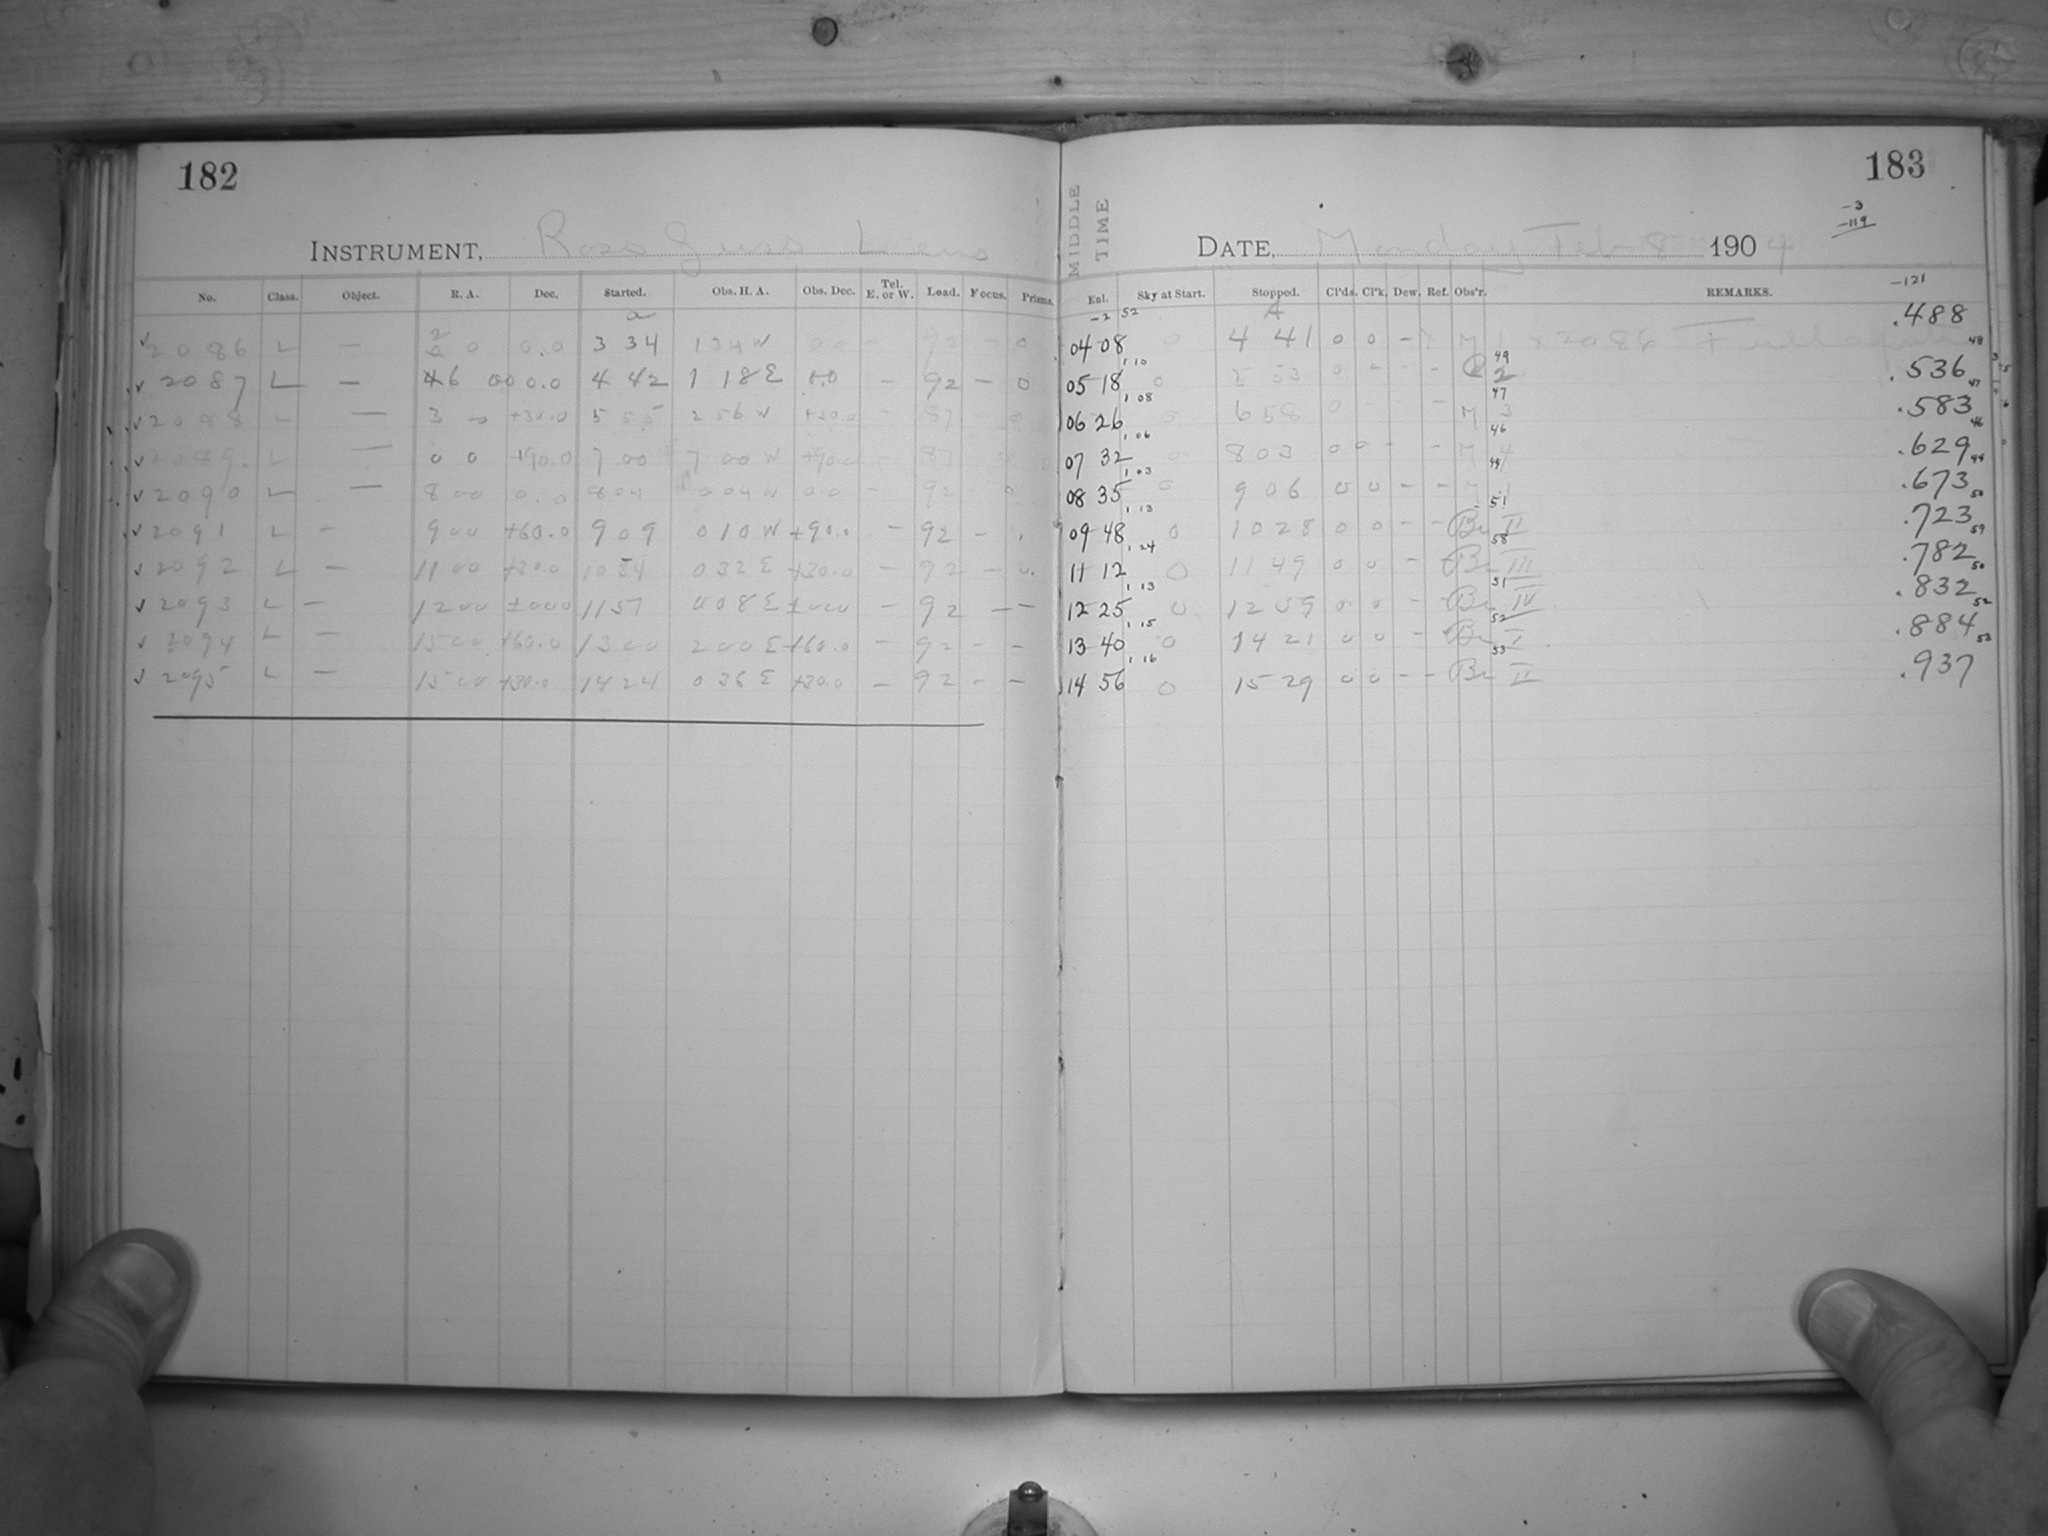 182
INSTRUMENT, Ross Lens
No. Class. Object. R. A. Dec. Started. Obs. H. A. Obs. Dec. Tel. E. or W. Load. Focus. Prisms.
2086 L — 0.0 3 34 1 34 W 0 0 – 92 – 0
√ 2087 L — 6 00 0.0 4 42 1 18 E 0.0 – 92 – 0
√ L — 3 +30.0 5 55 2 56 W +30.0 – 87
√ 2089 L — 0 0 +90.0 7 00 7 00 W +90.0 – 87
√ 2090 L — 8 00 0.0 8 04 0 04 W 0.0 – 92 – 0
√ 2091 L – 9 00 +60.0 9 09 0 10 W +90.0 – 92 –
√ 2092 L – 11 00 +30.0 10 34 0 32 E +30.0 – 92 – 0.
√ 2093 L – 12 00 ±000 11 57 0 08 E ±000 – 92 – –
√ 2094 L – 15 00 +60.0 13 00 2 00 E +60.0 – 92 – –
√ 2095 L – 15 00 +30.0 14 24 0 36 E +30.0 – 92 – –
183
MIDDLE TIME
–3
–119
DATE, Monday Feb 8 1904
–121
Enl. Sky at Start. Stopped. Cl'ds. Cl'k. Dew. Ref. Obs'r. REMARKS.
–2 52 A
04 08 0 4 41 0 0 – M 1 x 2086 .488 48
1 10 49
05 18 0 5 53 0 – – 2 .536 47
1 08 47
06 26 0 6 58 0 – M 3 .583 46
1 06 46
07 32 8 03 0 0 – – M 4 .629 44
1 03 44
08 35 0 9 06 0 0 – – M 1 .673 50
1 13 51
09 48 0 10 28 0 0 – – Be II .723 59
1 24 58
11 12 0 11 49 0 0 – – Be III .782 50
1 13 51
12 25 0 12 59 0 0 – – Be IV .832 52
1 15 52
13 40 0 14 21 0 0 – – Be I .884 53
1 16 53
14 56 0 15 29 0 0 – – Be II .937